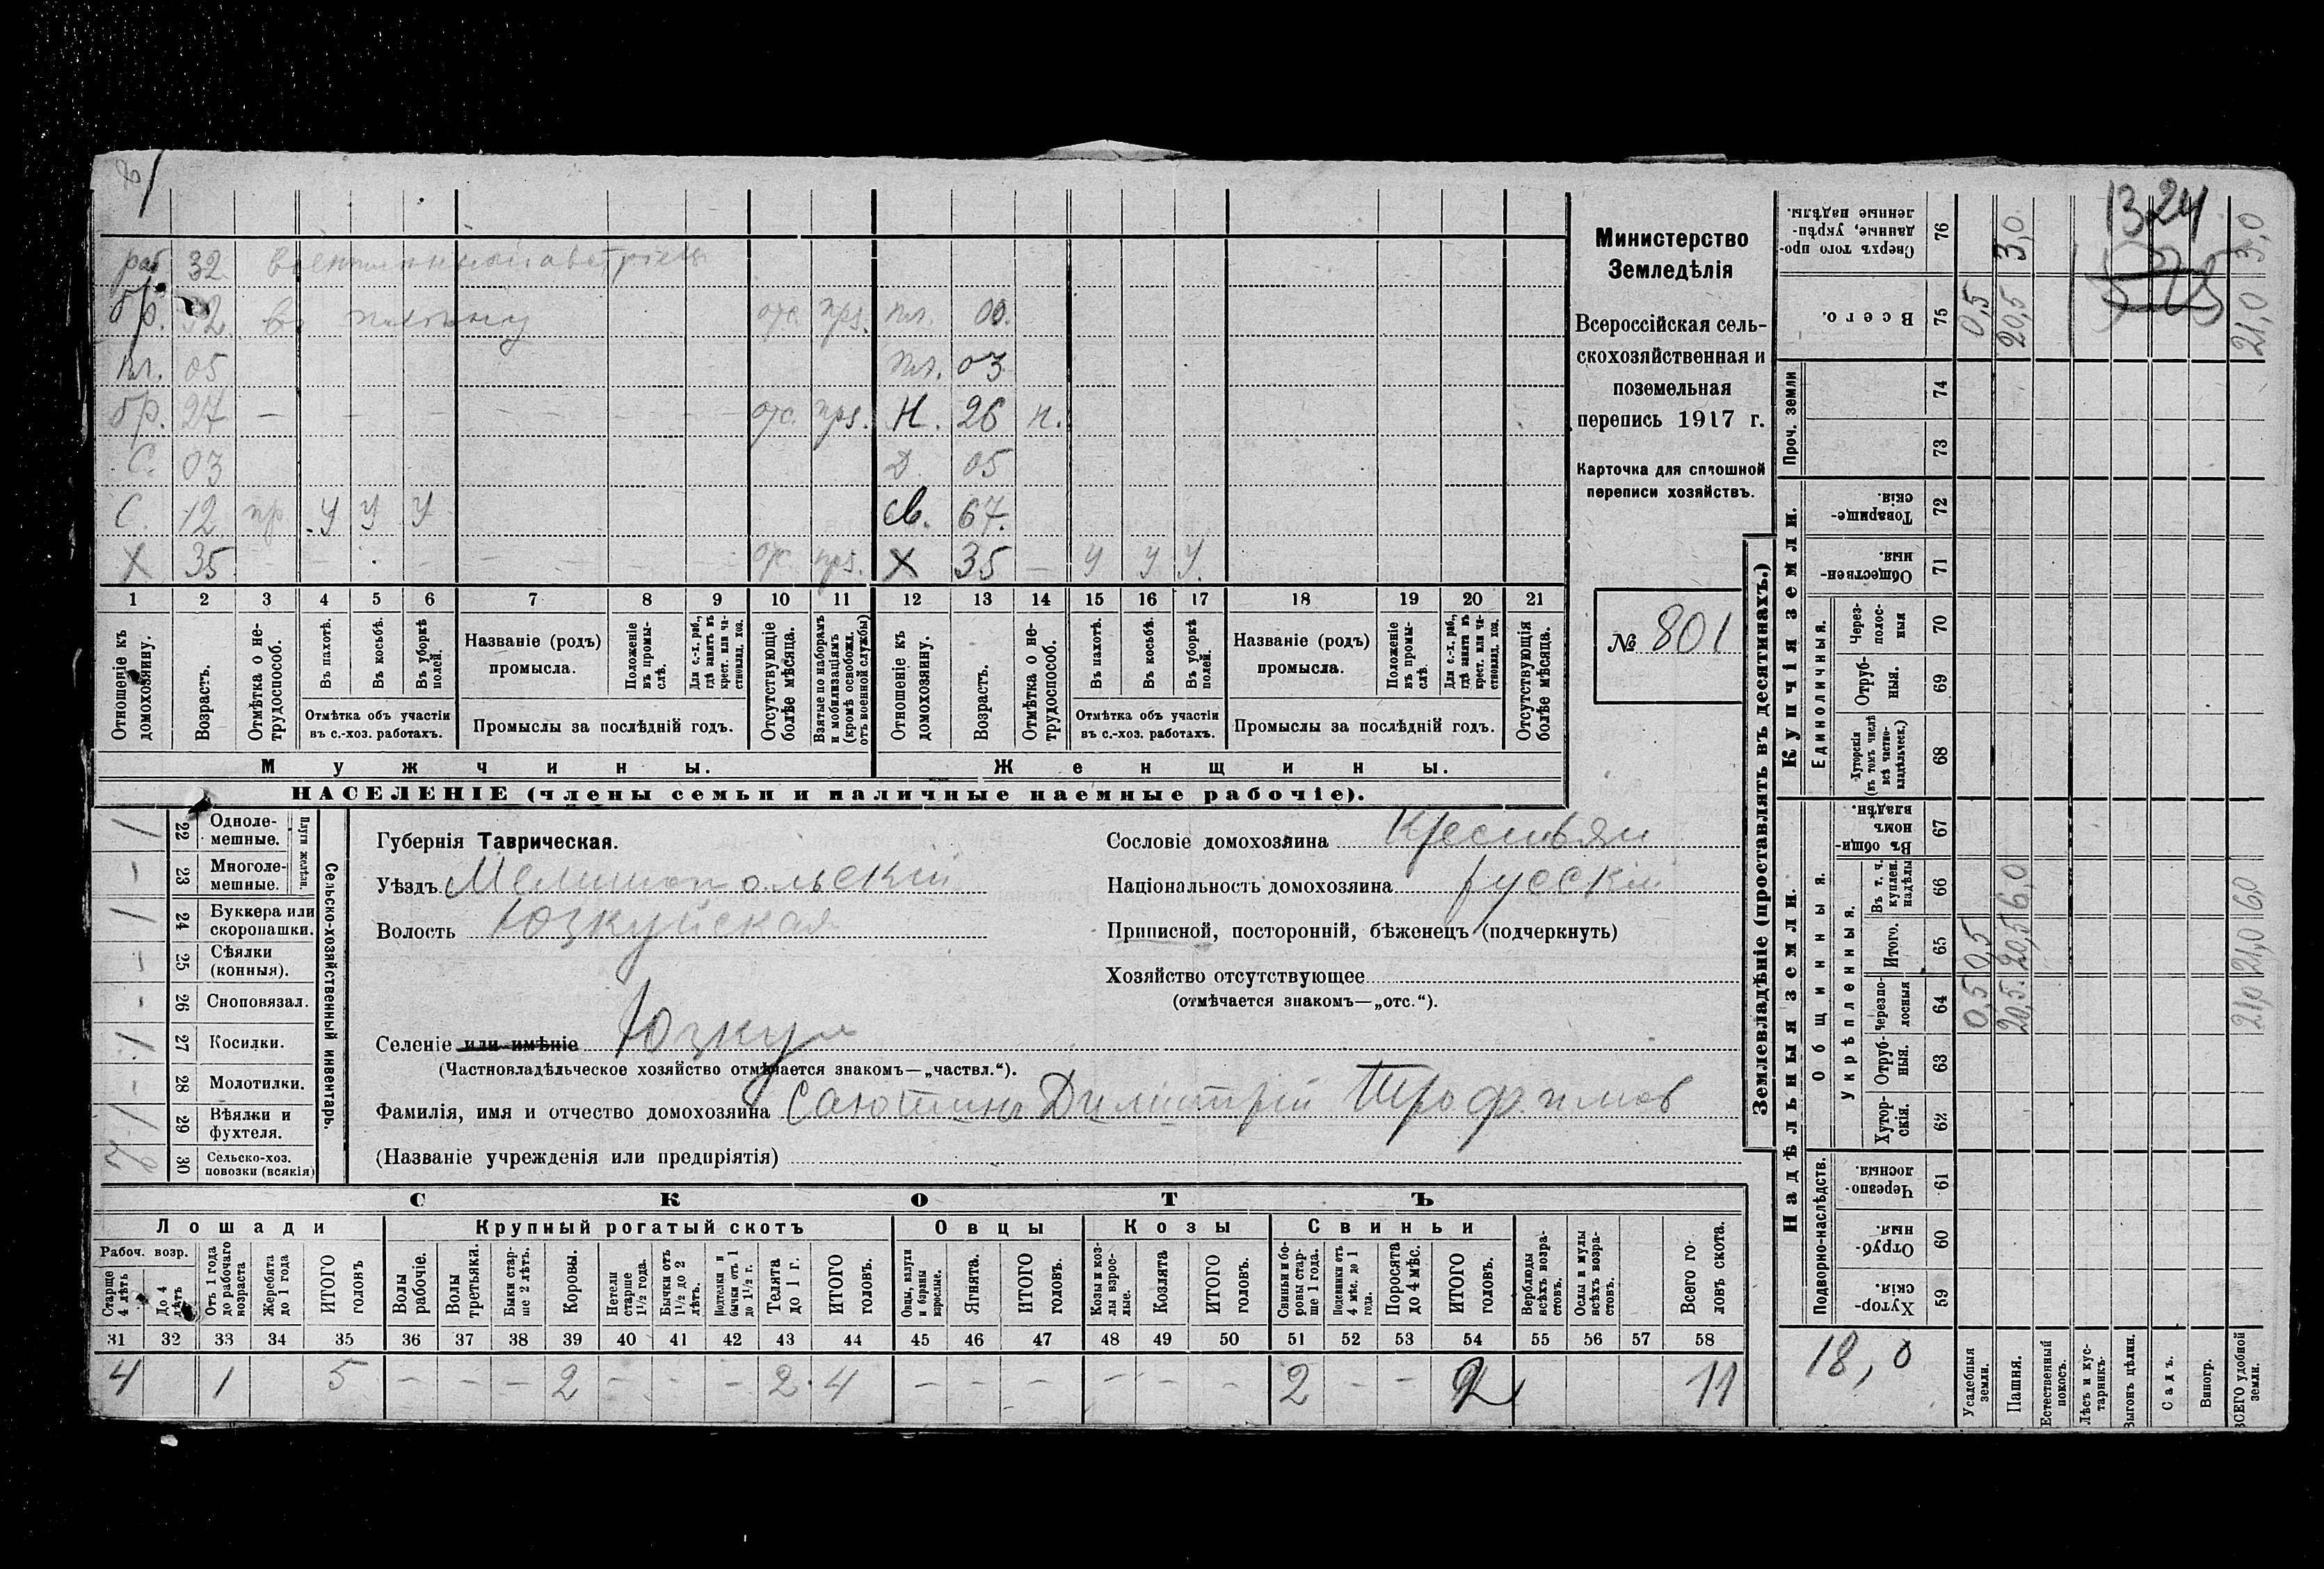 1324
раб 32. военноплѣнный австріецъ
бр. 32. въ плѣну отс. прз. пл. 00.
пл. 05 пл. 03
бр. 27 — — — — — — — отс. прз. Н. 26 н.
С. 03 Д. 05
С. 12 пр У У У св. 67.
Х 35 — — — — — — — отс. прз. Х 35 — У У У
1 2 3 4 5 6 7 8 9 10 11 12 13 14 15 16 17 18 19 20 21
Отношеніе къ домохозяину.
Возрастъ.
Отмѣтка о не-трудоспособ.
Въ пахотѣ.
Въ косьбѣ.
Въ уборкѣ полей.
Отмѣтка объ участіи
въ с.-хоз. работахъ.
Названіе (родъ)
промысла.
Положеніе въ промы-слѣ.
Для с.-х. раб., гдѣ занятъ въ крест. или ча-стновлад. хоз.
Промыслы за послѣдній годъ.
Отсутствующіе болѣе мѣсяца.
Взятые по наборамъ и мобилизаціямъ (кромѣ освобожд. отъ военной службы)
Отношеніе къ домохозяину.
Возрастъ.
Отмѣтка о не-трудоспособ.
Въ пахотѣ.
Въ косьбѣ.
Въ уборкѣ полей.
Отмѣтка объ участіи
въ с.-хоз. работахъ.
Названіе (родъ)
промысла.
Положеніе въ промы-слѣ.
Для с.-х. раб., гдѣ занята въ крест. или ча-стновлад. хоз.
Промыслы за послѣдній годъ.
Отсутствующія болѣе мѣсяца.
Мужчины. Женщины.
НАСЕЛЕНІЕ (члены семьи и наличные наемные рабочіе).
Министерство
Земледѣлія
Всероссійская сель-
скохозяйственная и
поземельная
перепись 1917 г.
Карточка для сплошной
переписи хозяйствъ.
№ 801
Сельско-хозяйственный инвентарь.
Плуги желѣзн.
1 22 Однолемешные.
— 23 Многолемешные.
1 24 Буккера или скоропашки.
— 25 Сѣялки (конныя).
- 26 Сноповязал.
1 27 Косилки.
- 28 Молотилки.
1 29 Вѣялки и фухтеля.
2 30 Сельско-хоз. повозки (всякія)
Губернія Таврическая.
Уѣздъ Мелитопольскій
Волость Юзкуйская
Селеніе или имѣніе Юзкуи
(Частновладѣльческое хозяйство отмѣчается знакомъ—„частвл.“).
Фамилія, имя и отчество домохозяина Саютинъ Димитрій Трофимов
(Названіе учрежденія или предпріятія)
Сословіе домохозяина Крестьян
Національность домохозяина русскій
Приписной, посторонній, бѣженецъ (подчеркнуть)
Хозяйство отсутствующее
(отмѣчается знакомъ—„отс.“).
СКОТЪ
Лошади Крупный рогатый скотъ Овцы Козы Свиньи
Рабоч. возр.
Старше 4 лѣтъ
До 4 лѣтъ
Отъ 1 года до рабочаго возраста
Жеребята до 1 года
ИТОГО головъ
Волы рабочіе.
Волы третьяки.
Быки стар-ше 2 лѣтъ.
Коровы.
Нетели старше 1½ года.
Бычки отъ 1½ до 2 лѣтъ.
Подтелки и бычки отъ 1 до 1½ г.
Телята до 1 г.
ИТОГО головъ.
Овцы, валухи и бараны взрослые.
Ягнята.
ИТОГО головъ.
Козы и коз-лы взрос-лые.
Козлята
ИТОГО головъ.
Свиньи и бо-ровы стар-ше 1 года.
Подсвинки отъ 4 мѣс. до 1 года.
Поросята до 4 мѣс.
ИТОГО головъ.
Верблюды всѣхъ возра-стовъ.
Ослы и мулы всѣхъ возра-стовъ.
Всего го-ловъ скота.
31 32 33 34 35 36 37 38 39 40 41 42 43 44 45 46 47 48 49 50 51 52 53 54 55 56 57 58
4 1 5 — — — 2 — - — 2 4 — — — — — — 2 — — 2 11
Землевладѣніе (проставлять въ десятинахъ.)
Надѣльныя земли. Купчія земли. Проч. земли
Подворно-наслѣдств. Общинныя. Единоличныя.
Укрѣпленныя.
Хутор-скія. 59
Отруб-ныя. 60
Черезпо-лосныя. 61
Хутор-скія. 62
Отруб-ныя. 63
Черезпо-лосныя 64
Итого. 65
Въ т. ч. куплен. надѣлы 66
Въ общин-номъ владѣн. 67
Хуторскія (въ томъ числѣ всѣ частно-владѣльческ.) 68
Отруб-ныя. 69
Через-полос-ныя 70
Обществен-ныя. 71
Товарище-скія. 72
73
74
Всего. 75
Сверхъ того про-данные, укрѣп-ленные надѣлы. 76
18,0
Усадебныя земли. 0,5 0,5 0,5
Пашня. 20,5 20,5 6,0 20,5 3,0
Естественный покосъ.
Лѣсъ и кус-тарникъ.
Выгонъ цѣлин.
Садъ.
Виногр.
ВСЕГО удобной земли. 21,0 21,0 6,0 21,0 3,0